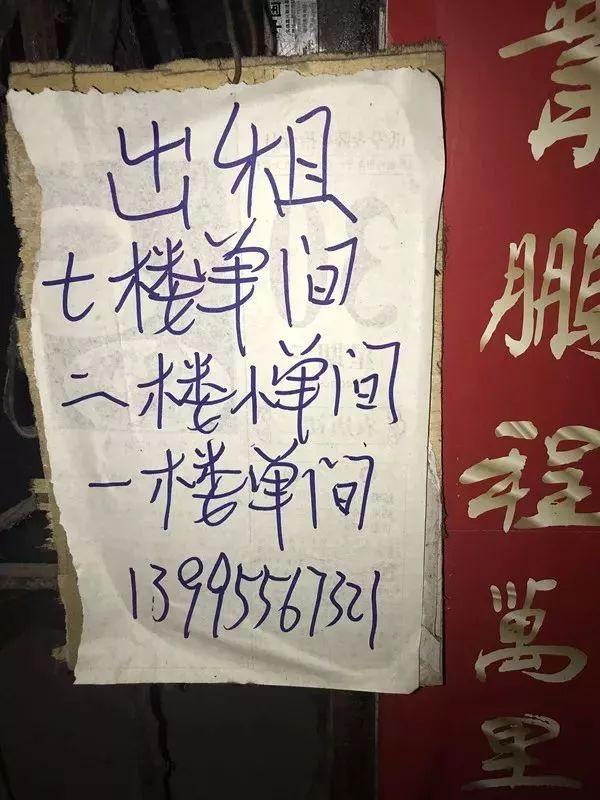 出租
七楼单间
二楼单间
一楼单间
13995567321
鹏程萬里